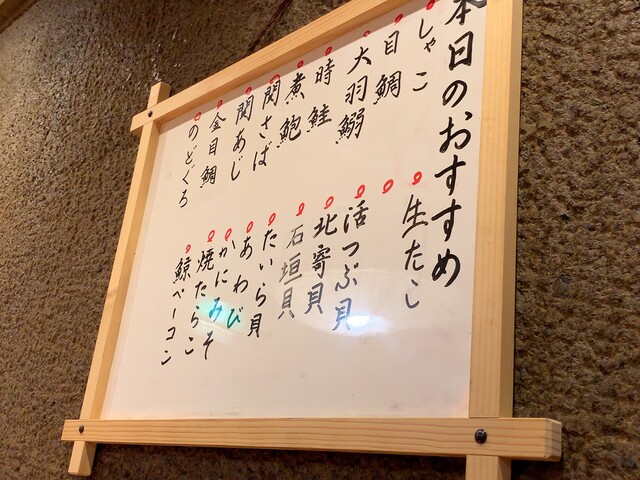 本日のおすすめ
しゃこ
目鯛
大羽鰯
時鮭
煮鮑
関さば
関あじ
金目鯛
のどぐろ
生たこ
活つぶ貝
北寄貝
石垣貝
たいら貝
あわび
かにみそ
焼たらこ
鯨ベーコン